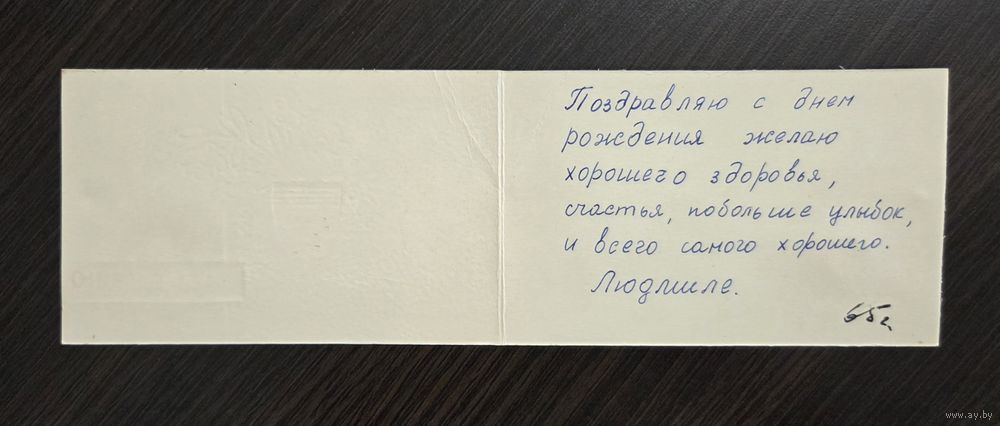 Поздравляю с днем
рождения желаю
хорошего здоровья,
счастья, побольше улыбок,
и всего самого хорошего.
Людмиле.
65г.
www.ay.by